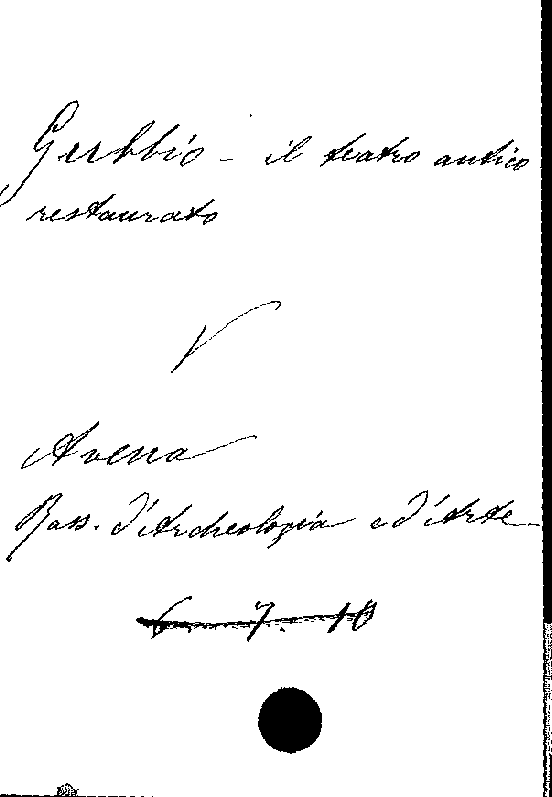 Gubbio - il teatro antico
restaurato
V
Avena
Rass. d'Archeologia e d'Arte
6. 7. 10